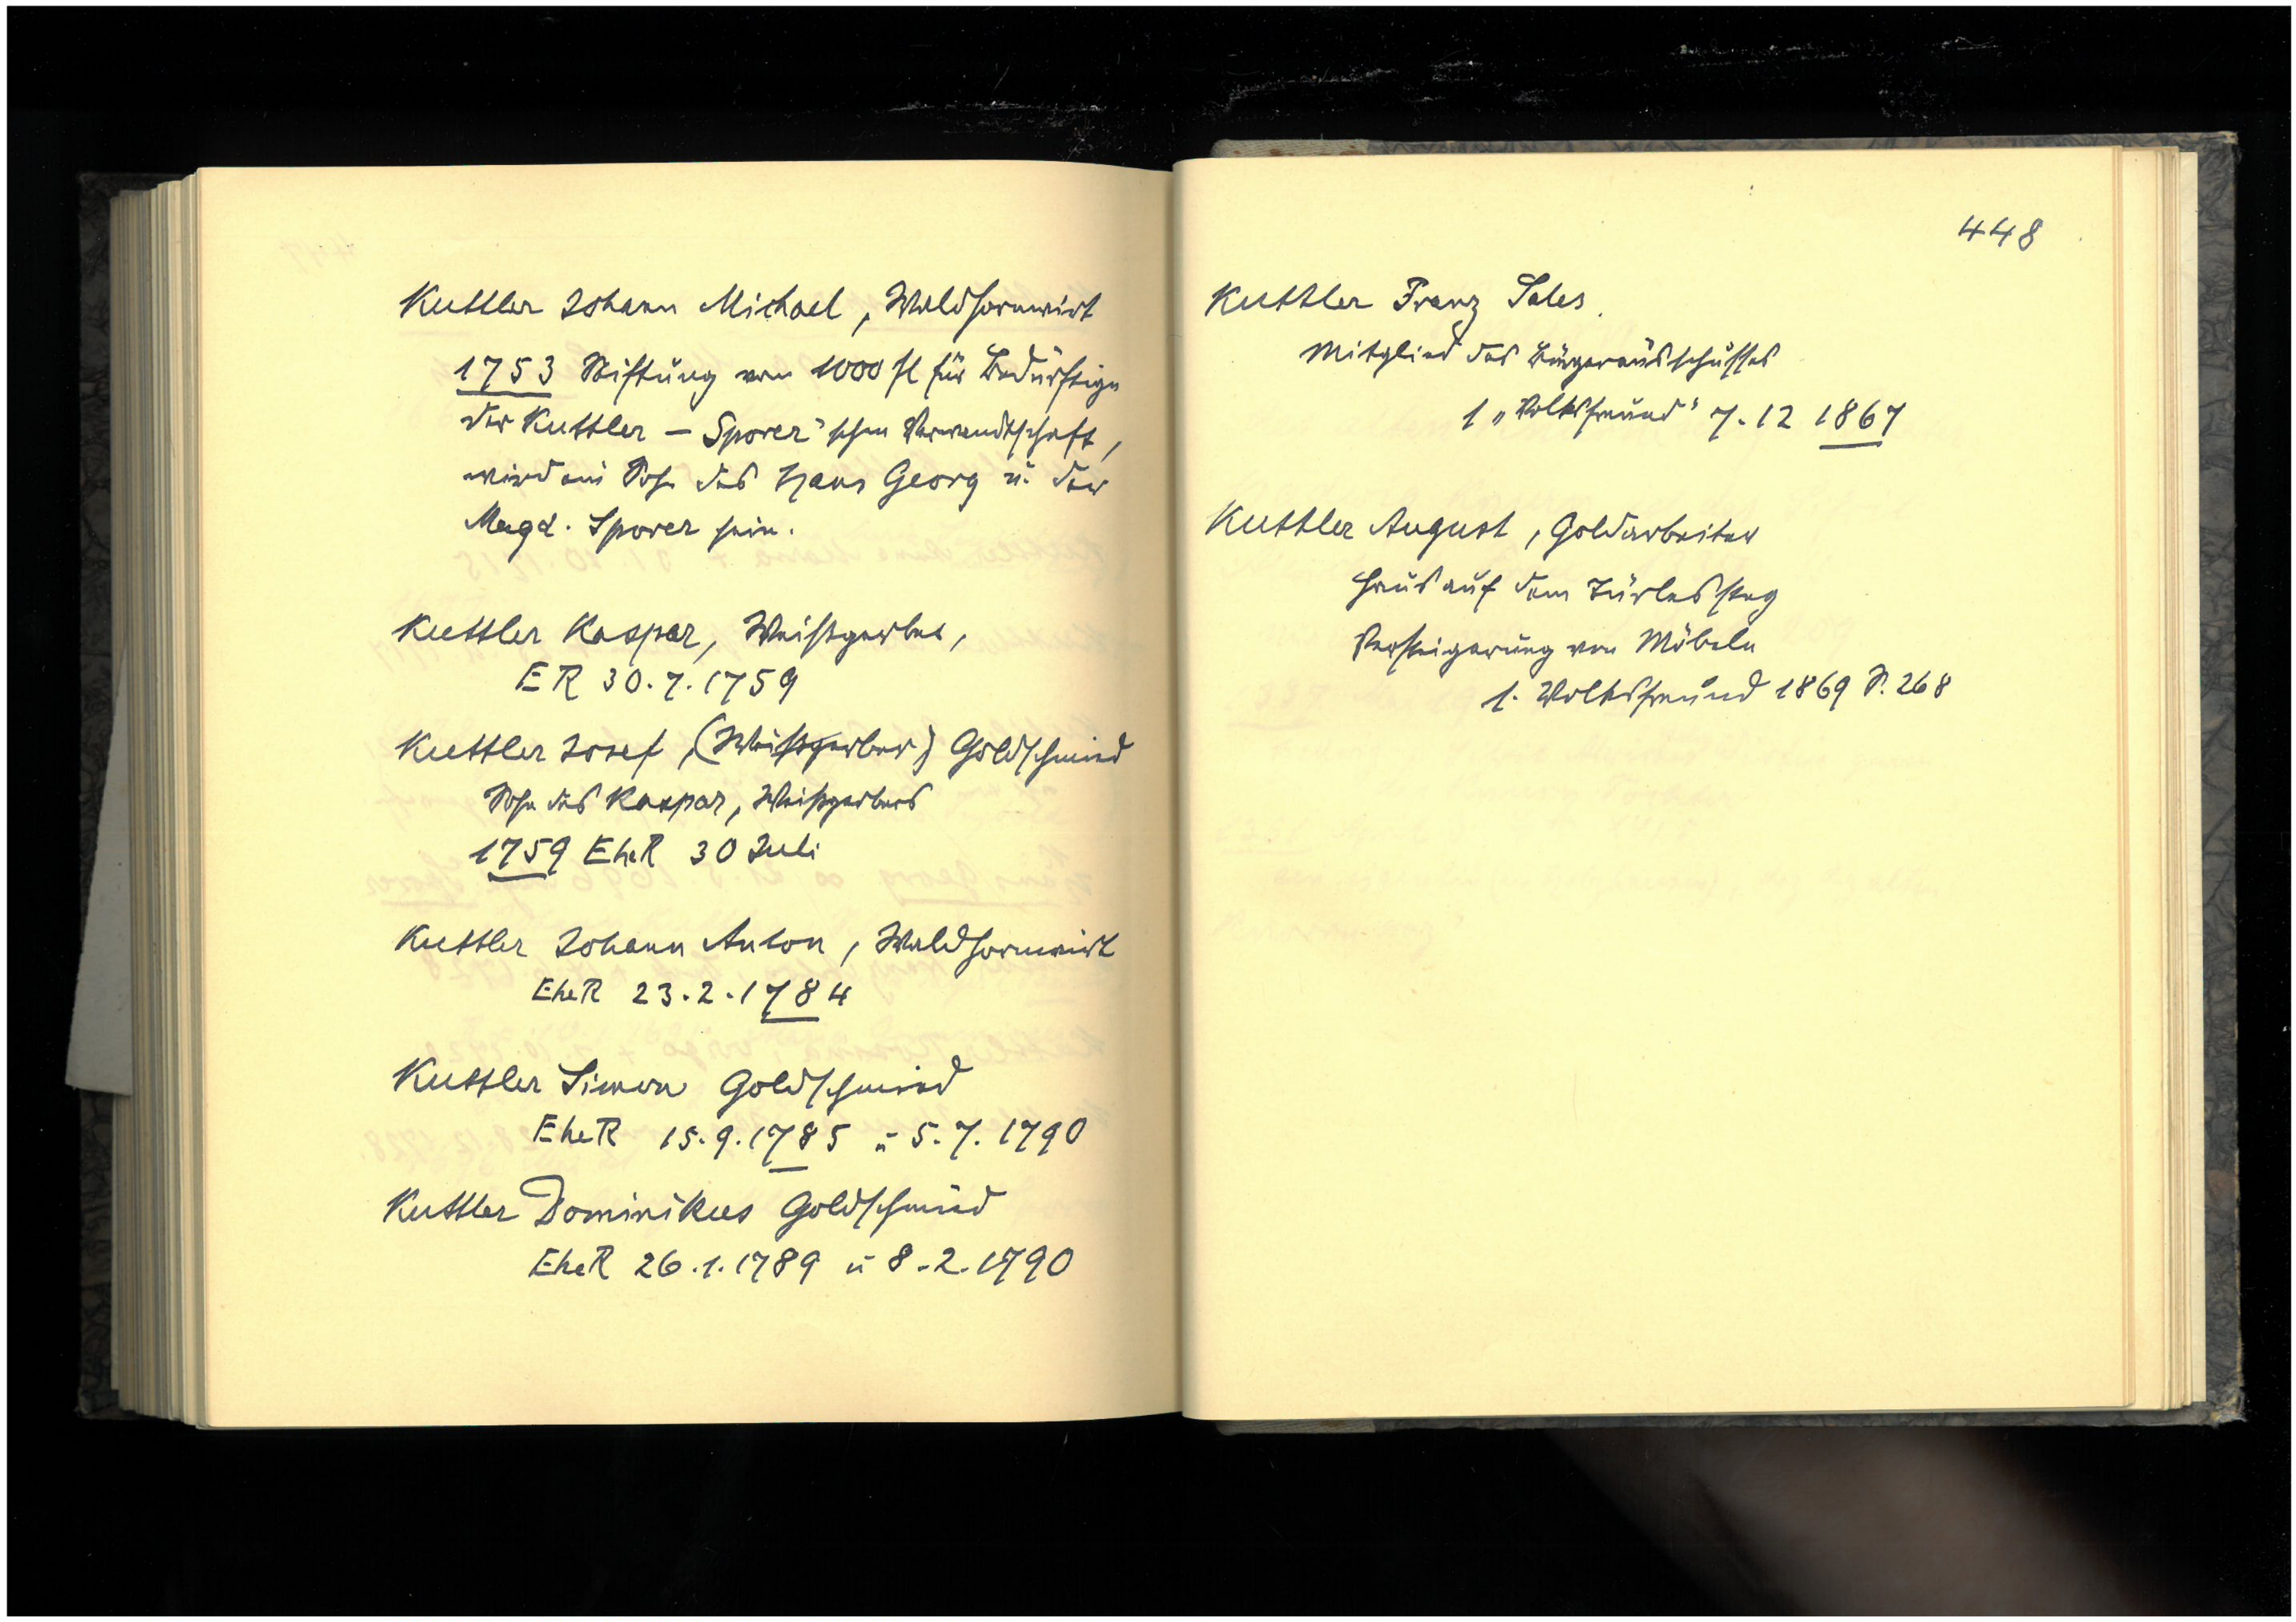 Kuttler Johann Michael, Waldhornwirt
1753 Stiftung von 1000 fl für Bedürftige
der Kuttler - Sporer'schen Verwandtschaft,
wird ein Sohn des Hans Georg u. der
Magd. Sporer sein.
Kuttler Kaspar, Weißgerber,
ER 30.7.1759
Kuttler Josef, (Weißgerber) Goldschmied
Sohn des Kaspar, Weißgerbers
1759 EheR 30 Juli
Kuttler Johann Anton, Waldhornwirt
EheR 23.2.1784
Kuttler Simon Goldschmied
EheR 15.9.1785 u 5.7.1790
Kuttler Dominikus Goldschmied
EheR 26.1.1789 u 8.2.1790
448
Kuttler Franz Sales.
Mitglied des Bürgerausschusses
1 "Volksfreund" 7.12 1867
Kuttler August, Goldarbeiter
Haus auf dem Türlessteg
Versteigerung von Möbeln
1. Volksfreund 1869 S. 268